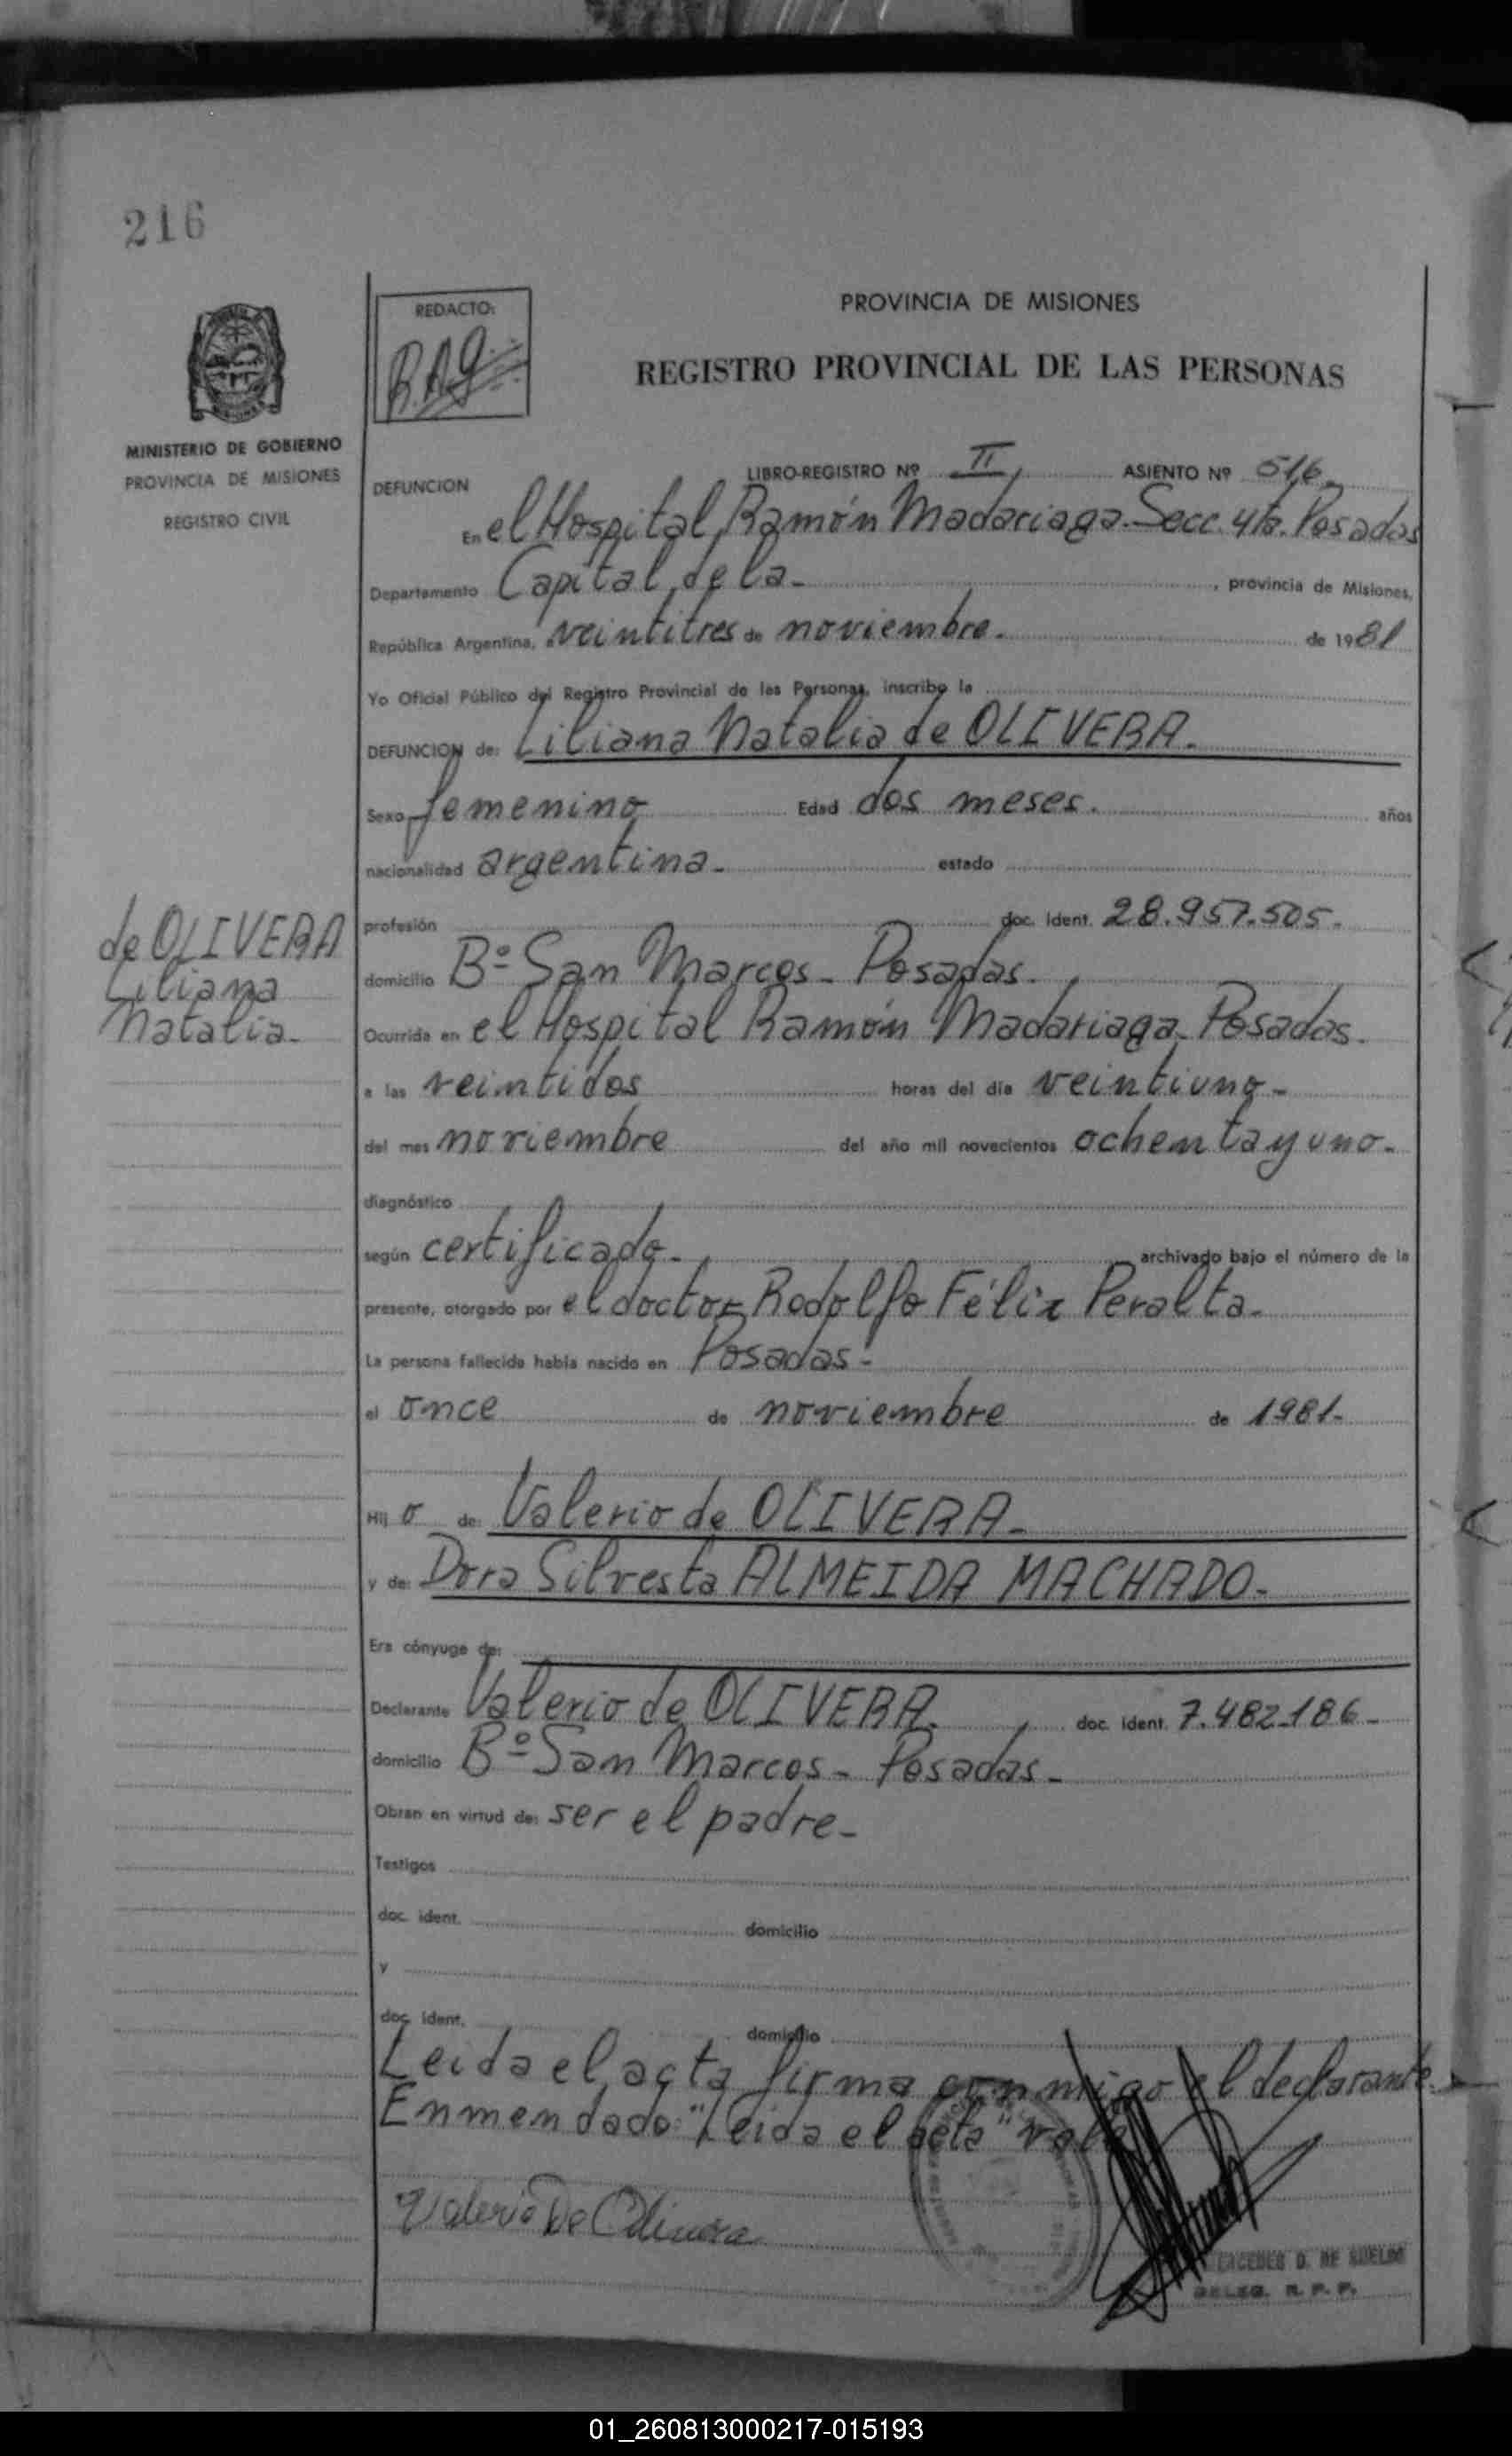 216
REDACTO:
PROVINCIA DE MISIONES
REGISTRO PROVINCIAL DE LAS PERSONAS
MINISTERIO DE GOBIERNO
PROVINCIA DE MISIONES
REGISTRO CIVIL
LIBRO-REGISTRO Nº II, ASIENTO Nº 516
DEFUNCION
En el Hospital Ramón Madariaga. Secc. 4ta. Posados
Departamento Capital, de la- , provincia de Misiones,
República Argentina, a veintitres de noviembre. de 1981
Yo Oficial Público del Registro Provincial de las Personas, inscribo la
DEFUNCION de: Liliana Natalia de OLIVERA.
Sexo femenino Edad dos meses. años
nacionalidad argentina. estado
profesión doc. Ident. 28.957.505.
de OLIVERA
Liliana
Natalia.
domicilio Bº San Marcos - Posadas.
Ocurrida en el Hospital Ramón Madariaga. Posadas.
a las veintidos horas del día veintiuno-
del mes noviembre del año mil novecientos ochenta y uno-
diagnóstico
según certificado. archivado bajo el número de la
presente, otorgado por el doctor Rodolfo Félix Peralta.
La persona fallecida había nacido en Posadas-
el once de noviembre de 1981-
Hij o de: Valerio de OLIVERA-
y de: Dora Silvesta ALMEIDA MACHADO-
Era cónyuge de:
Declarante Valerio de OLIVERA. doc. ident. 7.482.186-
domicilio Bº San Marcos - Posadas-
Obran en virtud de: ser el padre-
Testigos
doc. ident. domicilio
y
doc. ident. domicilio
Leida el acta firma conmigo el declarante.
Enmendado: "Leida el acta" vale
Valerio De Olivera
D. DE
DELEG. R. P. P.
01_260813000217-015193